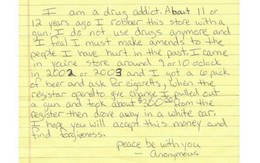 I am a drug addict. About 11 or
12 years ago I robber this store with a
gun. I do not use drugs anymore and
I feel I must make amends to the
people I have hurt in the past. I came
in you're store around 9 or 10 oclock
in 2002 or 2003 and I got a 6 pack
of beer and ask for cigaretts, when the
register opend to give change I pulled out
a gun and took about $300.00 from the
register then drove away in a white car.
I hope you will accept this money and
find forgiveness.
peace be with you
- Anonymous